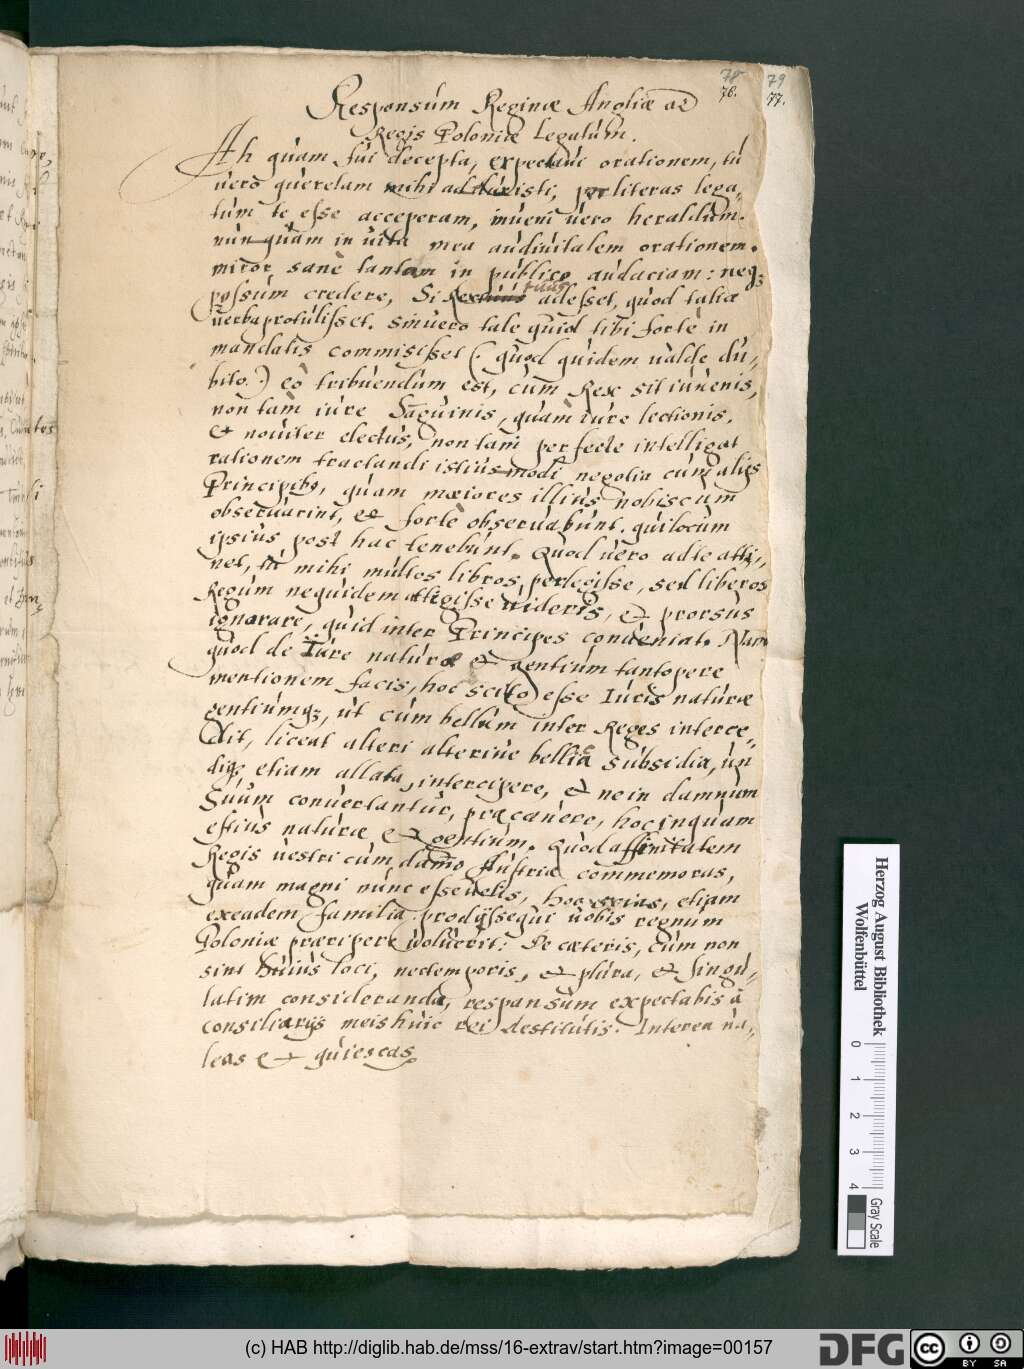 78 79
76. 77.
Responsum Reginæ Angliæ ad
Regis Poloniæ Legatum.
Ah quam fui decepta, expectaui orationem, tu
uero querelam mihi adduxisti, per literas lega„
tum te esse acceperam, inueni uero heraldum.
nunquam in uita mea audiui talem orationem.
miror sane tantam in publico audaciam: neq3
possum credere, Si Rex tuus adesset, quod talia
uerba protulisset. sin uero tale quid tibi forte in
mandatis commisisset (. quod quidem ualde du„
bito.) eo tribuendum est, cum Rex sit iuuenis,
non tam iure Sanguinis, quam iure lectionis.
& nouiter electus, non tam perfecte intelligat
rationem tractandi istiusmodi negotia cum alijs
Principib9, quam maiores illius nobiscum
obseruarint, et forte obseruabunt. qui locum
ipsius post hac tenebunt. Quod uero ad te atti„
net, tu mihi multos libros, perlegisse, sed libros
Regum nequidem attigisse uideris, & prorsus
ignorare, quid inter Principes conueniat. Nam
quod de Iure naturæ & gentium tantopere
mentionem facis, hoc scito esse Iuris naturæ
gentiumq3, ut cum bellum inter Reges interce„
dit, liceat alteri alteriue bellica subsidia, un
diq3, etiam allata, intercipere, & ne in damnum
Suum conuertantur, præcauere, hoc inquam
est ius naturæ & gentium. Quod affinitatem
Regis uestri cum domo Austria commemoras,
quam magni nunc esse uelis, hoc scias, etiam
ex eadem familia prodijsse qui uobis regnum
Poloniæ præripere uoluerit: De cæteris, cum non
sint huius loci, nec temporis, & plura, & singu„
latim consideranda, responsum expectabis à
consiliarijs meis huic rei destitutis. Interea ua„
leas & quiescas.
Herzog August Bibliothek
Wolfenbüttel
0 1 2 3 4
Gray Scale
(c) HAB http://diglib.hab.de/mss/16-extrav/start.htm?image=00157
DFG
cc BY SA